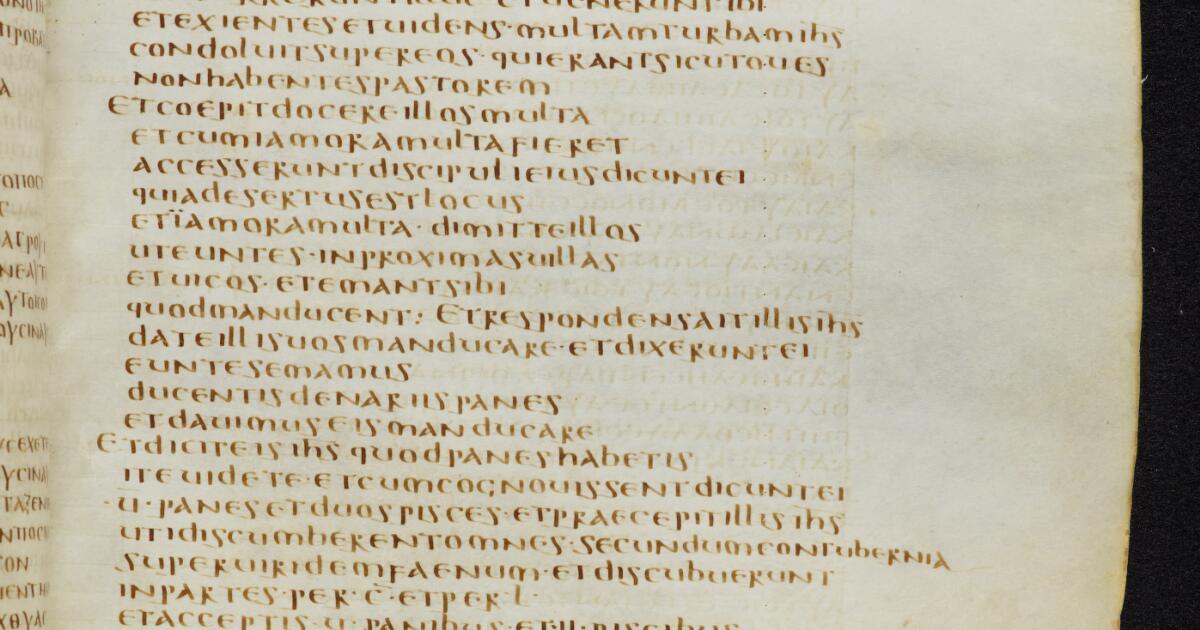 etueneruntibi
etexientesetuidens·multamturbamihs
condoluitsupereos·quierantsicutoues
nonhabentespastorem
Etcoepitdocereillosmulta
etcumiamoramultafieret
accesseruntdiscipulieiusdicuntei
quiadesertusestlocus
etïamoramulta·dimitteillos
uteuntes·inproximasuillas
etuicos·etemantsibi
quodmanducent: Etrespondensaitillisihs
dateillisuosmanducare·etdixeruntei
euntesemamus
ducentisdenariispanes
etdauimuseismanducare
Etdiciteisihs quodpaneshabetis
iteuidete·etcumcognouissentdicuntei
·u·panesetduospisces·etpraecepitillisihs
utidiscumberentomnes·secundumcontubernia
superuiridemfaenum·etdiscubuerunt
inpartes·per·c̄·etper·l·
etacceptis·u·panibus·et·ii·piscibus